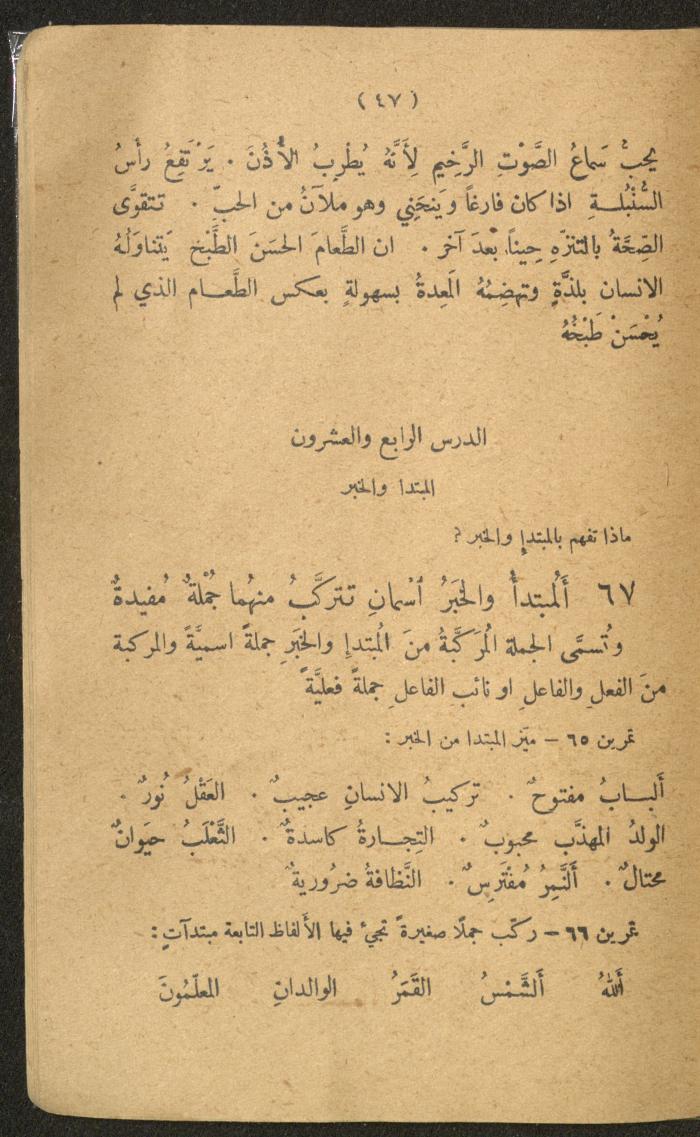 (٤٧)
يحبُّ سَماعُ الصَّوْتِ الرَّخِيمِ لِأَنَّهُ يُطْرِبُ الأُذُنَ . يَرْتَفِعُ رأْسُ
السُّنْبُلــةِ اذا كان فارغاً ويَنحَنِي وهو ملآنٌ من الحبِّ . تتقوَّى
الصِّحَّةُ بالتنزُّهِ حيناً بعدَ آخر . ان الطَّعامَ الحسَنَ الطَّبْخِ يَتناوَلُهُ
الانسان بلذَّةٍ وتهضِمُهُ المَعِدةُ بسهولةٍ بعكس الطَّعــام الذي لم
يُحْسَنْ طَبْخُهُ
الدرس الرابع والعشرون
المبتدا والخبر
ماذا تفهم بالمبتدإِ والخبر ؟
٦٧ أَلمُبتدأُ والخبَرُ اسْمانِ تتركَّبُ منهُما جُمْلةٌ مُفيدةٌ
وتُسمَّى الجملة المُرَكَّبةُ منَ المُبتدإِ والخبَرِ جملةً اسميَّةً والمركبة
منَ الفعلِ والفاعلِ او نائبِ الفاعلِ جملةً فعليَّةً
تمرين ٦٥ – ميّز المبتدا من الخبر :
أَلبــابُ مفتوحٌ . تركيبُ الانسانِ عجيبٌ . العَقْلُ نُورٌ .
الولدُ المهذَّب محبوبٌ . التِجــارةُ كاسدةٌ . الثَّعْلَبُ حيَوانٌ
محتالٌ . أَلنَّمِرُ مُفْتَرِسٌ . النَّظافةُ ضرُوريةٌ
تمرين ٦٦ – ركّب جملًا صغيرةً تجيءُ فيها الأَلفاظ التابعة مبتدآتٍ :
أَللهُ أَلشَّمْسُ القَمَرُ الوالدانِ المعلّمُونَ